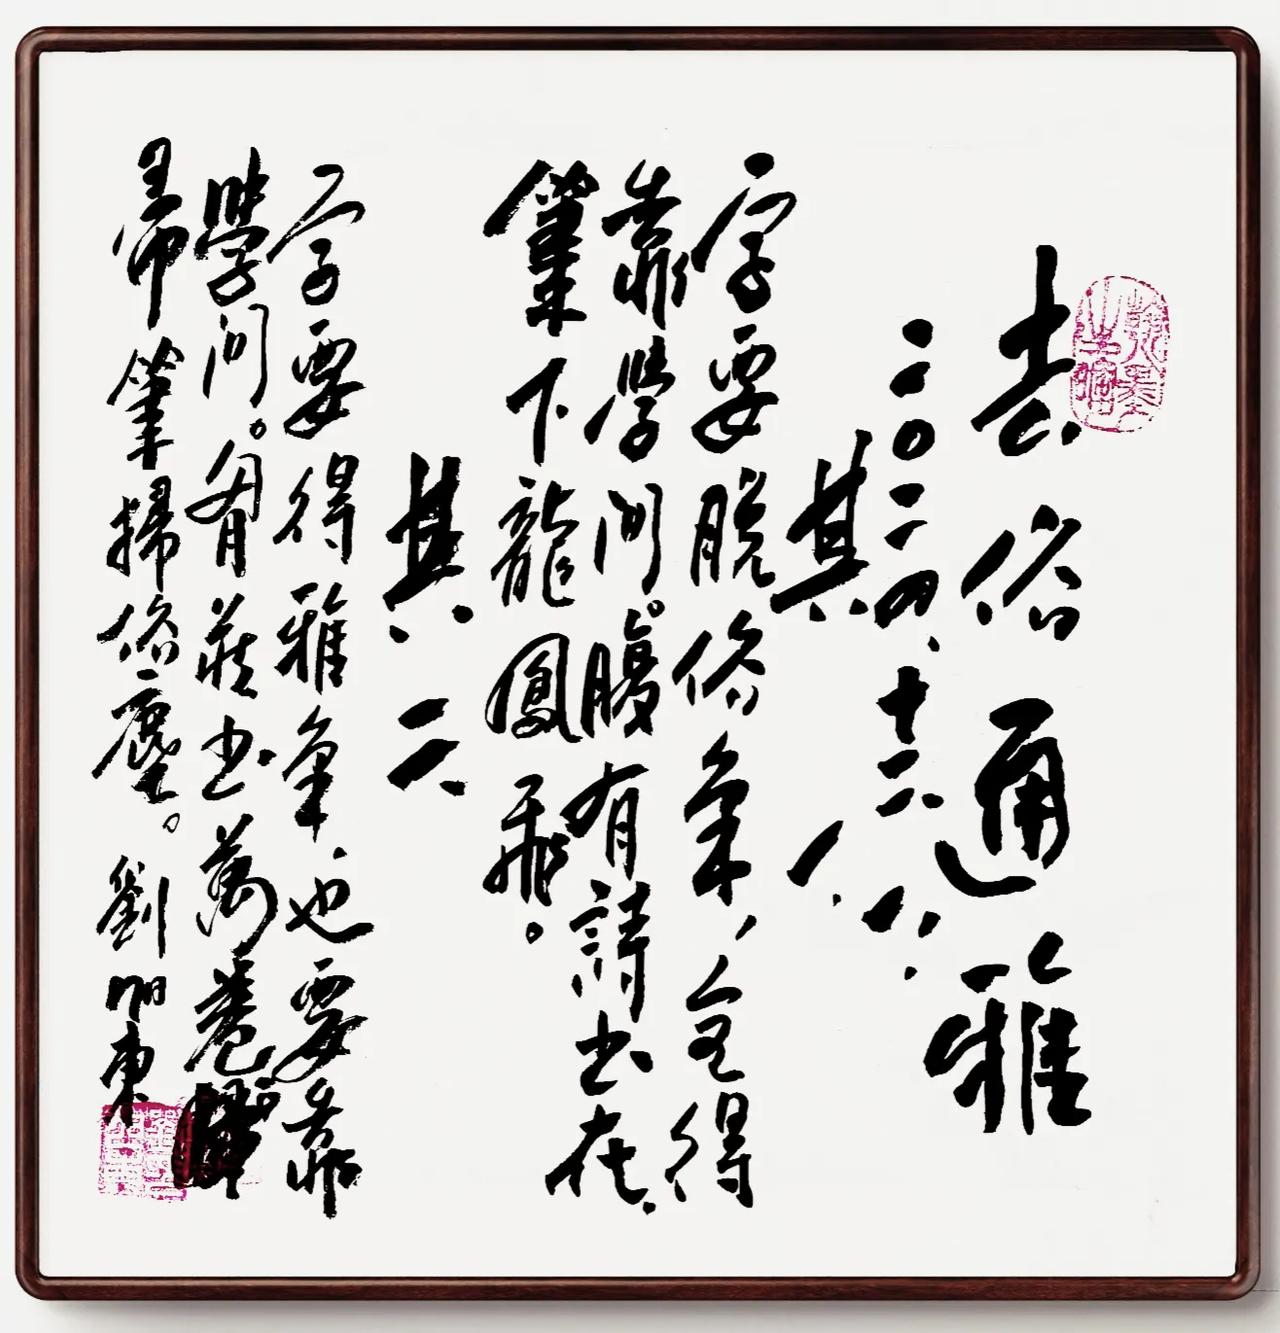 去俗通雅
二〇二四、十二、八、
其一、
字要脫俗氣，全得
靠學問。腹有詩书在
筆下龍鳳飛。
其二、
字要得雅氣，也要靠
學問。胷藏书萬卷
筆掃俗塵。劉東